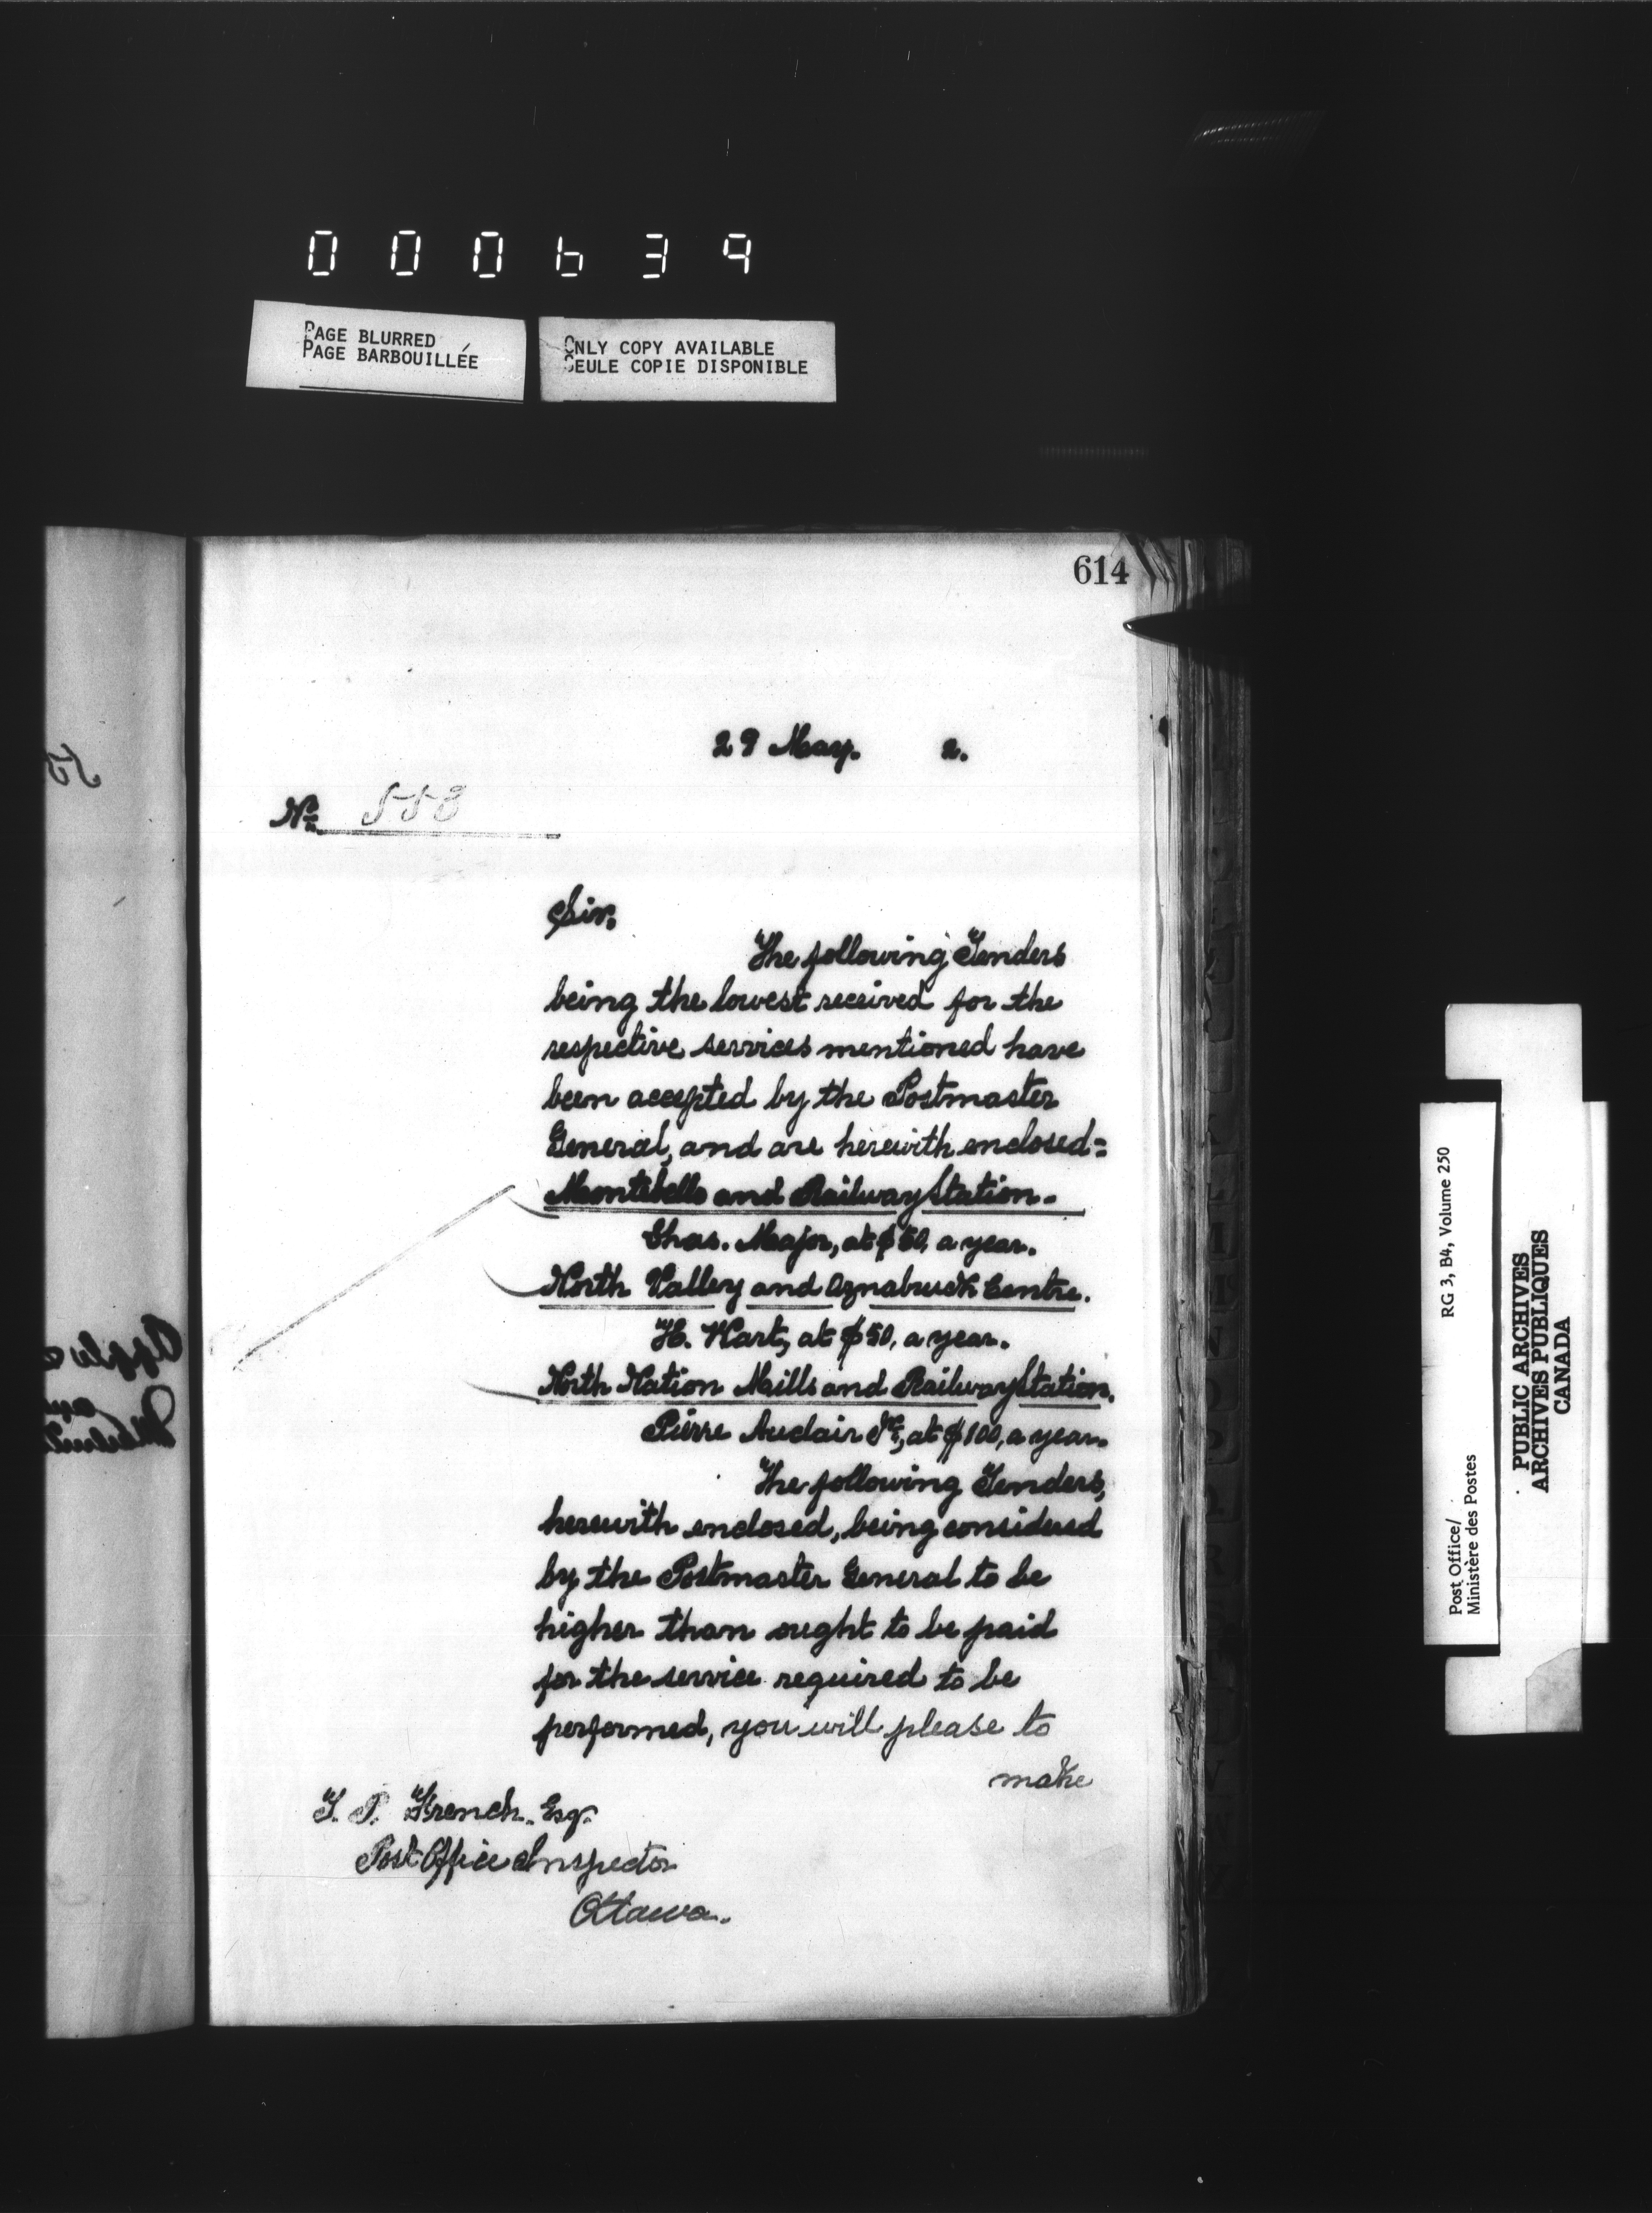 000639
PAGE BLURRED
PAGE BARBOUILLÉE
ONLY COPY AVAILABLE
SEULE COPIE DISPONIBLE
614
29 May. 2.
No. 553
Sir,
The following Tenders
being the lowest received for the
respective services mentioned have
been accepted by the Postmaster
General, and are herewith enclosed:
Montebello and Railway Station.
Chas. Major, at $50, a year.
North Valley and Oznabruck Centre.
H. Wart, at $50, a year.
North Nation Mills and Railway Station.
Pierre Auclair Jr, at $100, a year.
The following Tenders,
herewith enclosed, being considered
by the Postmaster General to be
higher than ought to be paid
for the service required to be
performed, you will please to
make
T. P. French. Esqr.
Post Office Inspector
Ottawa.
Post Office/
Ministère des Postes
RG 3, B4, Volume 250
PUBLIC ARCHIVES
ARCHIVES PUBLIQUES
CANADA